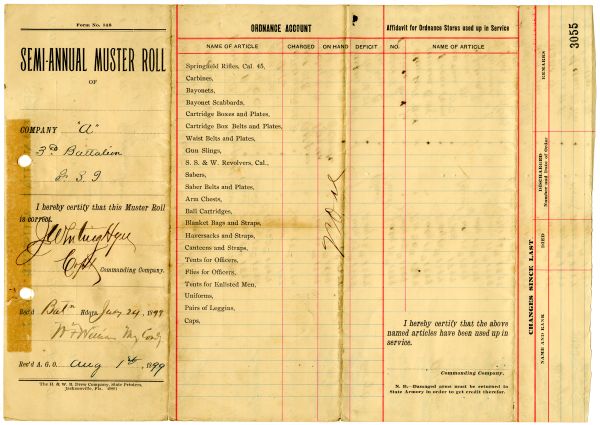 Form No. 146
SEMI-ANNUAL MUSTER ROLL
OF
COMPANY "A"
3rd Battalion
I hereby certify that this Muster Roll
is correct.
Capt
Commanding Company.
Rec'd Batn Hdqrs July 24, 1899
Rec'd A. G. O. Aug 1st, 1899
The H. & W. B. Drew Company, State Printers,
Jacksonville, Fla.
ORDNANCE ACCOUNT
NAME OF ARTICLE CHARGED ON HAND DEFICIT
Springfield Rifles, Cal. 45,
Carbines,
Bayonets,
Bayonet Scabbards,
Cartridge Boxes and Plates,
Cartridge Box Belts and Plates,
Waist Belts and Plates,
Gun Slings,
S. S. & W. Revolvers, Cal.,
Sabers,
Saber Belts and Plates,
Arm Chests,
Ball Cartridges,
Blanket Bags and Straps,
Haversacks and Straps,
Canteens and Straps,
Tents for Officers,
Flies for Officers,
Tents for Enlisted Men,
Uniforms,
Pairs of Leggins,
Caps,
None
Affidavit for Ordnance Stores used up in Service
NO. NAME OF ARTICLE
I hereby certify that the above
named articles have been used up in
service.
Commanding Company.
N. B.—Damaged arms must be returned to
State Armory in order to get credit therefor.
CHANGES SINCE LAST
NAME AND RANK
DIED
DISCHARGED
Number and Date of Order
REMARKS
3055